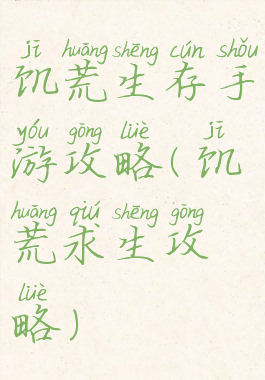 jī huāng shēng cún shǒu
饥荒生存手
yóu gōng lüè jī
游攻略(饥
huāng qiú shēng gōng
荒求生攻
lüè
略)